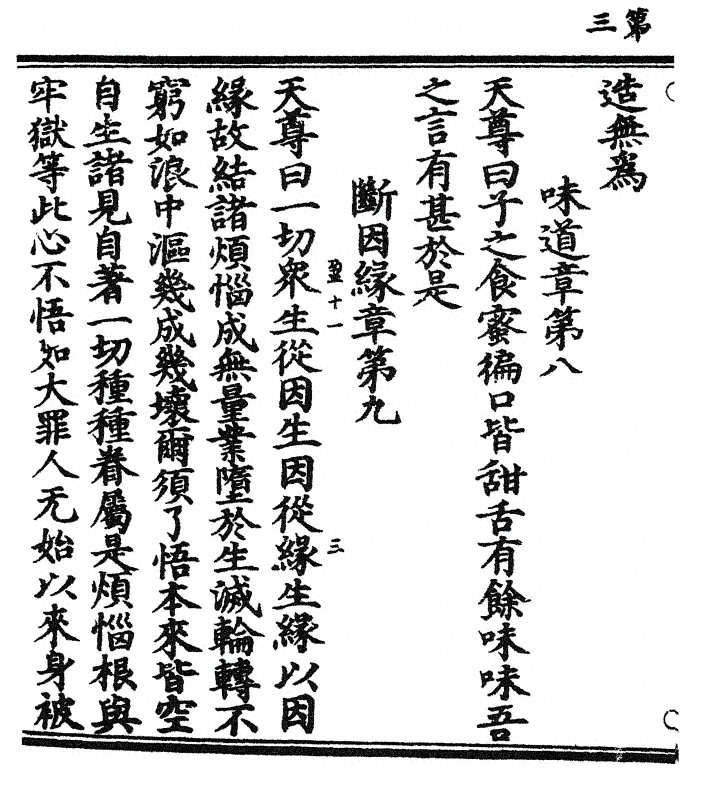 第三
造無為
味道章第八
天尊曰子之食蜜徧口皆甜舌有餘味味吾
之言有甚於是
斷因緣章第九
盈十一
三
天尊曰一切衆生從因生因從緣生緣以因
緣故結諸煩惱成無量業墮於生滅輪轉不
窮如浪中漚幾成幾壞爾須了悟本來皆空
自生諸見自著一切種種眷屬是煩惱根與
牢獄等此心不悟如大罪人无始以來身被